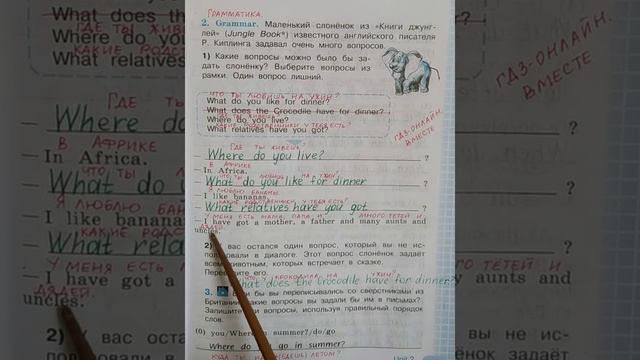 ГРАММАТИКА.
2. Grammar. Маленький слонёнок из «Книги джунг-
лей» (Jungle Book*) известного английского писателя
Р. Киплинга задавал очень много вопросов.
1) Какие вопросы можно было бы за-
дать слонёнку? Выберите вопросы из
рамки. Один вопрос лишний.
ЧТО ТЫ ЛЮБИШЬ НА УЖИН?
What do you like for dinner?
What does the Crocodile have for dinner?
ГДЕ ТЫ ЖИВЁШЬ?
Where do you live?
What relatives have you got?
ГДЗ-ОНЛАЙН.
ВМЕСТЕ
ГДЕ ТЫ ЖИВЁШЬ?
— Where do you live? ?
В АФРИКЕ
— In Africa.
ЧТО ТЫ ЛЮБИШЬ НА УЖИН?
— What do you like for dinner ?
Я ЛЮБЛЮ БАНАНЫ.
— I like bananas.
— What relatives have you got ?
У МЕНЯ ЕСТЬ МАМА, ПАПА И МНОГО ТЁТЕЙ И
— I have got a mother, a father and many aunts and
ДЯДЕЙ.
uncles.
2) У вас остался один вопрос, который вы не ис-
пользовали в диалоге. Этот вопрос слонёнок задаёт
всем животным, которых встречает в сказке.
Переведите его.
ЧТО У КРОКОДИЛА НА УЖИН?
What does the Crocodile have for dinner?
3. Если бы вы переписывались со сверстниками из
Британии, какие вопросы вы задали бы им в письмах?
Запишите эти вопросы, используя правильный порядок
слов.
(0) you/Where/in summer?/do/go
Where do you go in summer?
КУДА ТЫ ЛЕТОМ?
Unit 2
What does the
ГДЕ ТЫ ЖИ
Where do
КАКИЕ РОДСТ
What relatives
ГДЕ ТЫ
— Where do
В АФРИКЕ
— In Africa.
ЧТО ТЫ
— What do
Я ЛЮБЛЮ
— I like banana
КАКИЕ РОДС
— What rela
У МЕНЯ ЕСТЬ
— I have got a
ДЯДЕЙ.
uncles.
2) У
ГДЗ-ОНЛАЙН.
ВМЕСТЕ
?
?
?
О ТЁТЕЙ И
y aunts and
вы не ис-